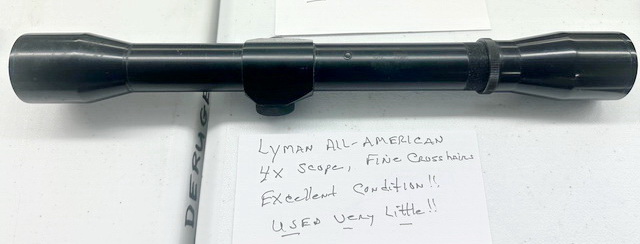 DERUGE
LYMAN ALL-AMERICAN
4X Scope, Fine Crosshairs
Excellent Condition!!
USED Very Little!!